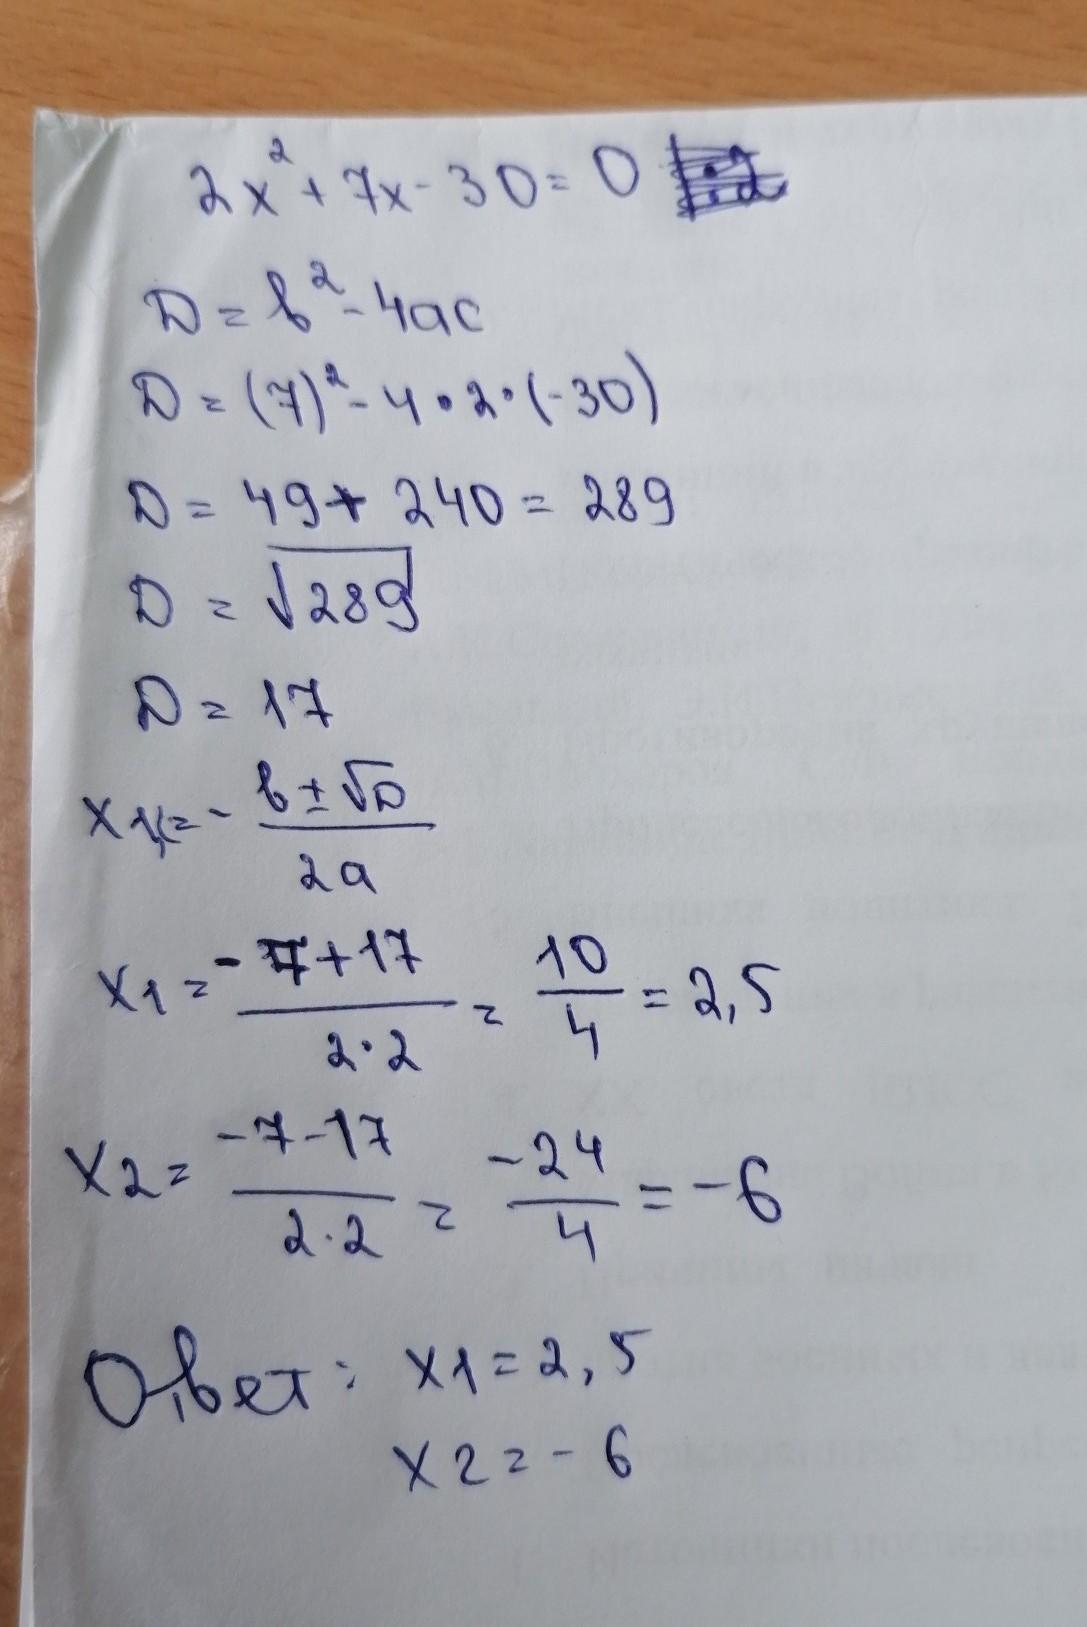 2x² + 7x - 30 = 0
D = b² - 4ac
D = (7)² - 4 • 2 • (-30)
D = 49 + 240 = 289
D = √289
D = 17
x₁,₂ = - b ± √D / 2a
x1 = -7+17 / 2•2 = 10/4 = 2,5
x2 = -7-17 / 2•2 = -24/4 = -6
Ответ: x1 = 2,5
x2 = -6